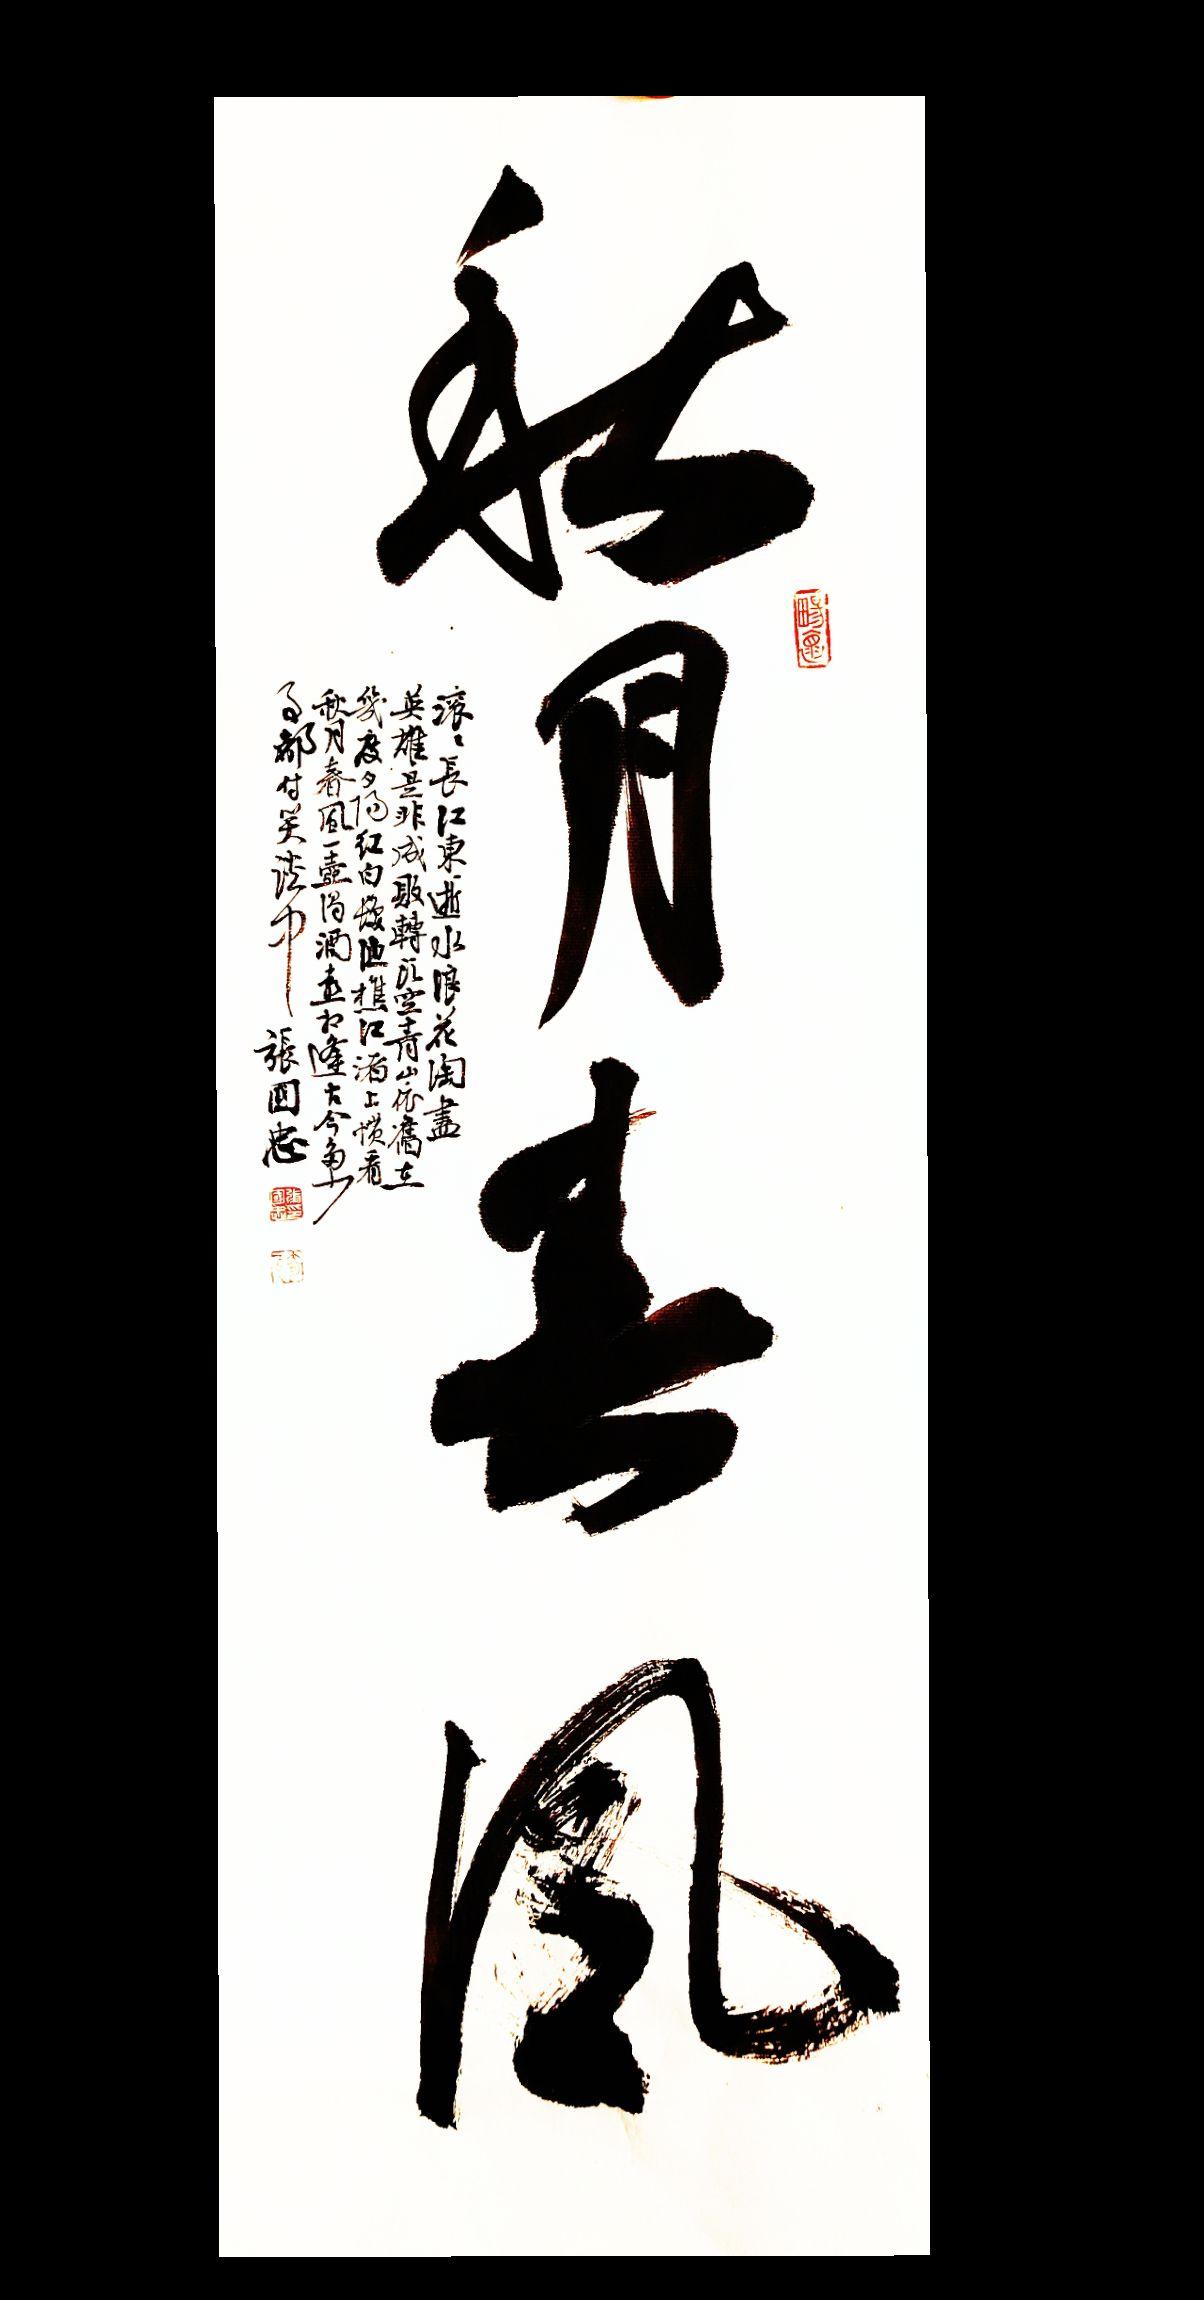 秋月春風
滚々長江東逝水浪花淘盡
英雄是非成敗轉頭空青山依舊在
幾度夕陽紅白髮漁樵江渚上惯看
秋月春風一壺濁酒喜相逢古今多少
事都付笑談中
張国忠